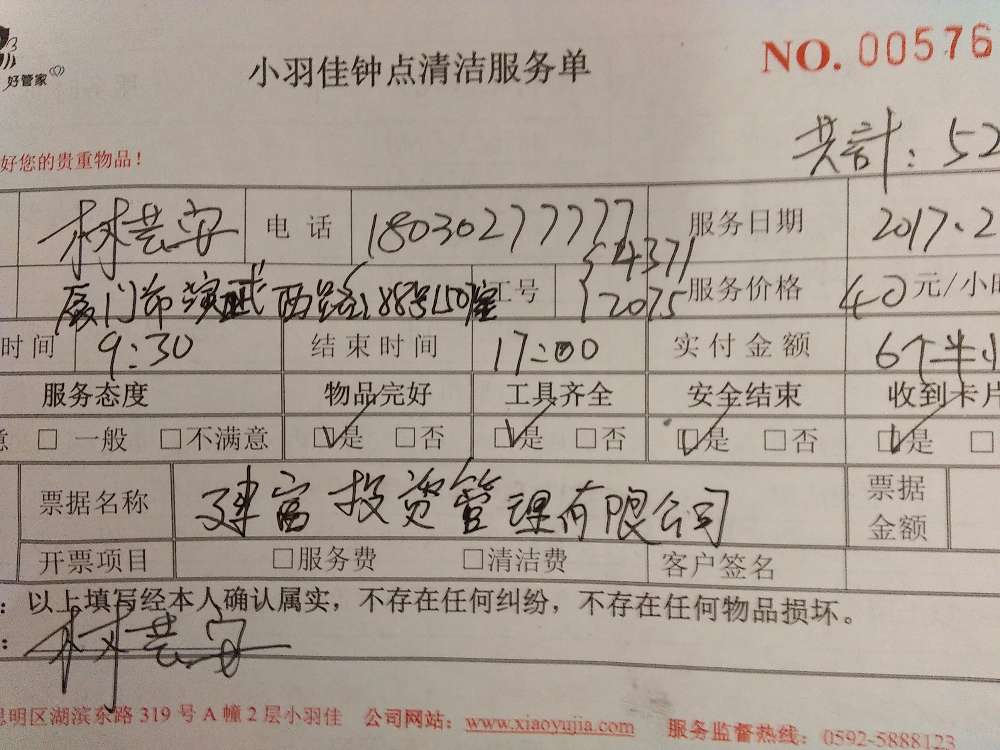 小羽佳钟点清洁服务单 NO. 00576
好管家
共計：52
好您的贵重物品！
林芸安 电话 18030277777 服务日期 2017.2
厦门市演武西路188号1507室 工号 {4371 2075 服务价格 40元/小时
时间 9:30 结束时间 17:00 实付金额 6个半小
服务态度 物品完好 工具齐全 安全结束 收到卡片
意 □ 一般 □不满意 ☑是 □否 ☑是 □否 ☑是 □否 ☑是 □
票据名称 建富投资管理有限公司 票据金额
开票项目 □服务费 □清洁费 客户签名
：以上填写经本人确认属实，不存在任何纠纷，不存在任何物品损坏。
：林芸安
思明区湖滨东路 319 号 A 幢 2 层小羽佳 公司网站：www.xiaoyujia.com 服务监督热线：0592-5888123